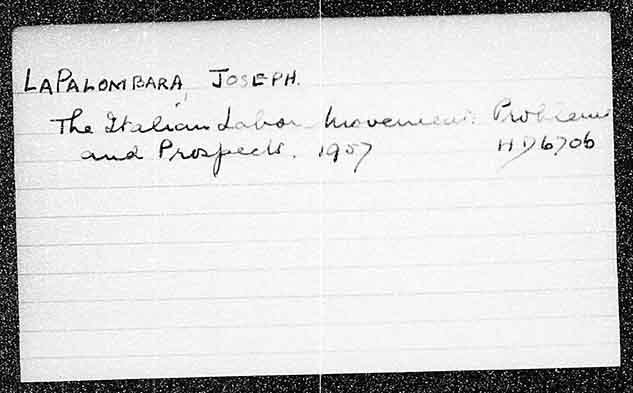 LAPALOMBARA, JOSEPH.
The Italian Labor Movement: Problems
and Prospects. 1957 HD6706